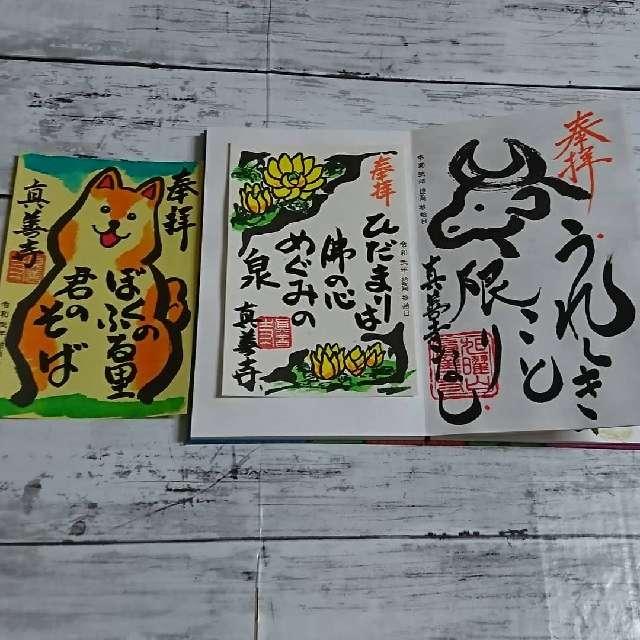 奉拝
ぼくの
ふる里
君の
そば
真善寺
奉拝
ひだまりは
佛の心
めぐみの
泉
真善寺
奉拝
うれしき
こと
限りなし
真善寺